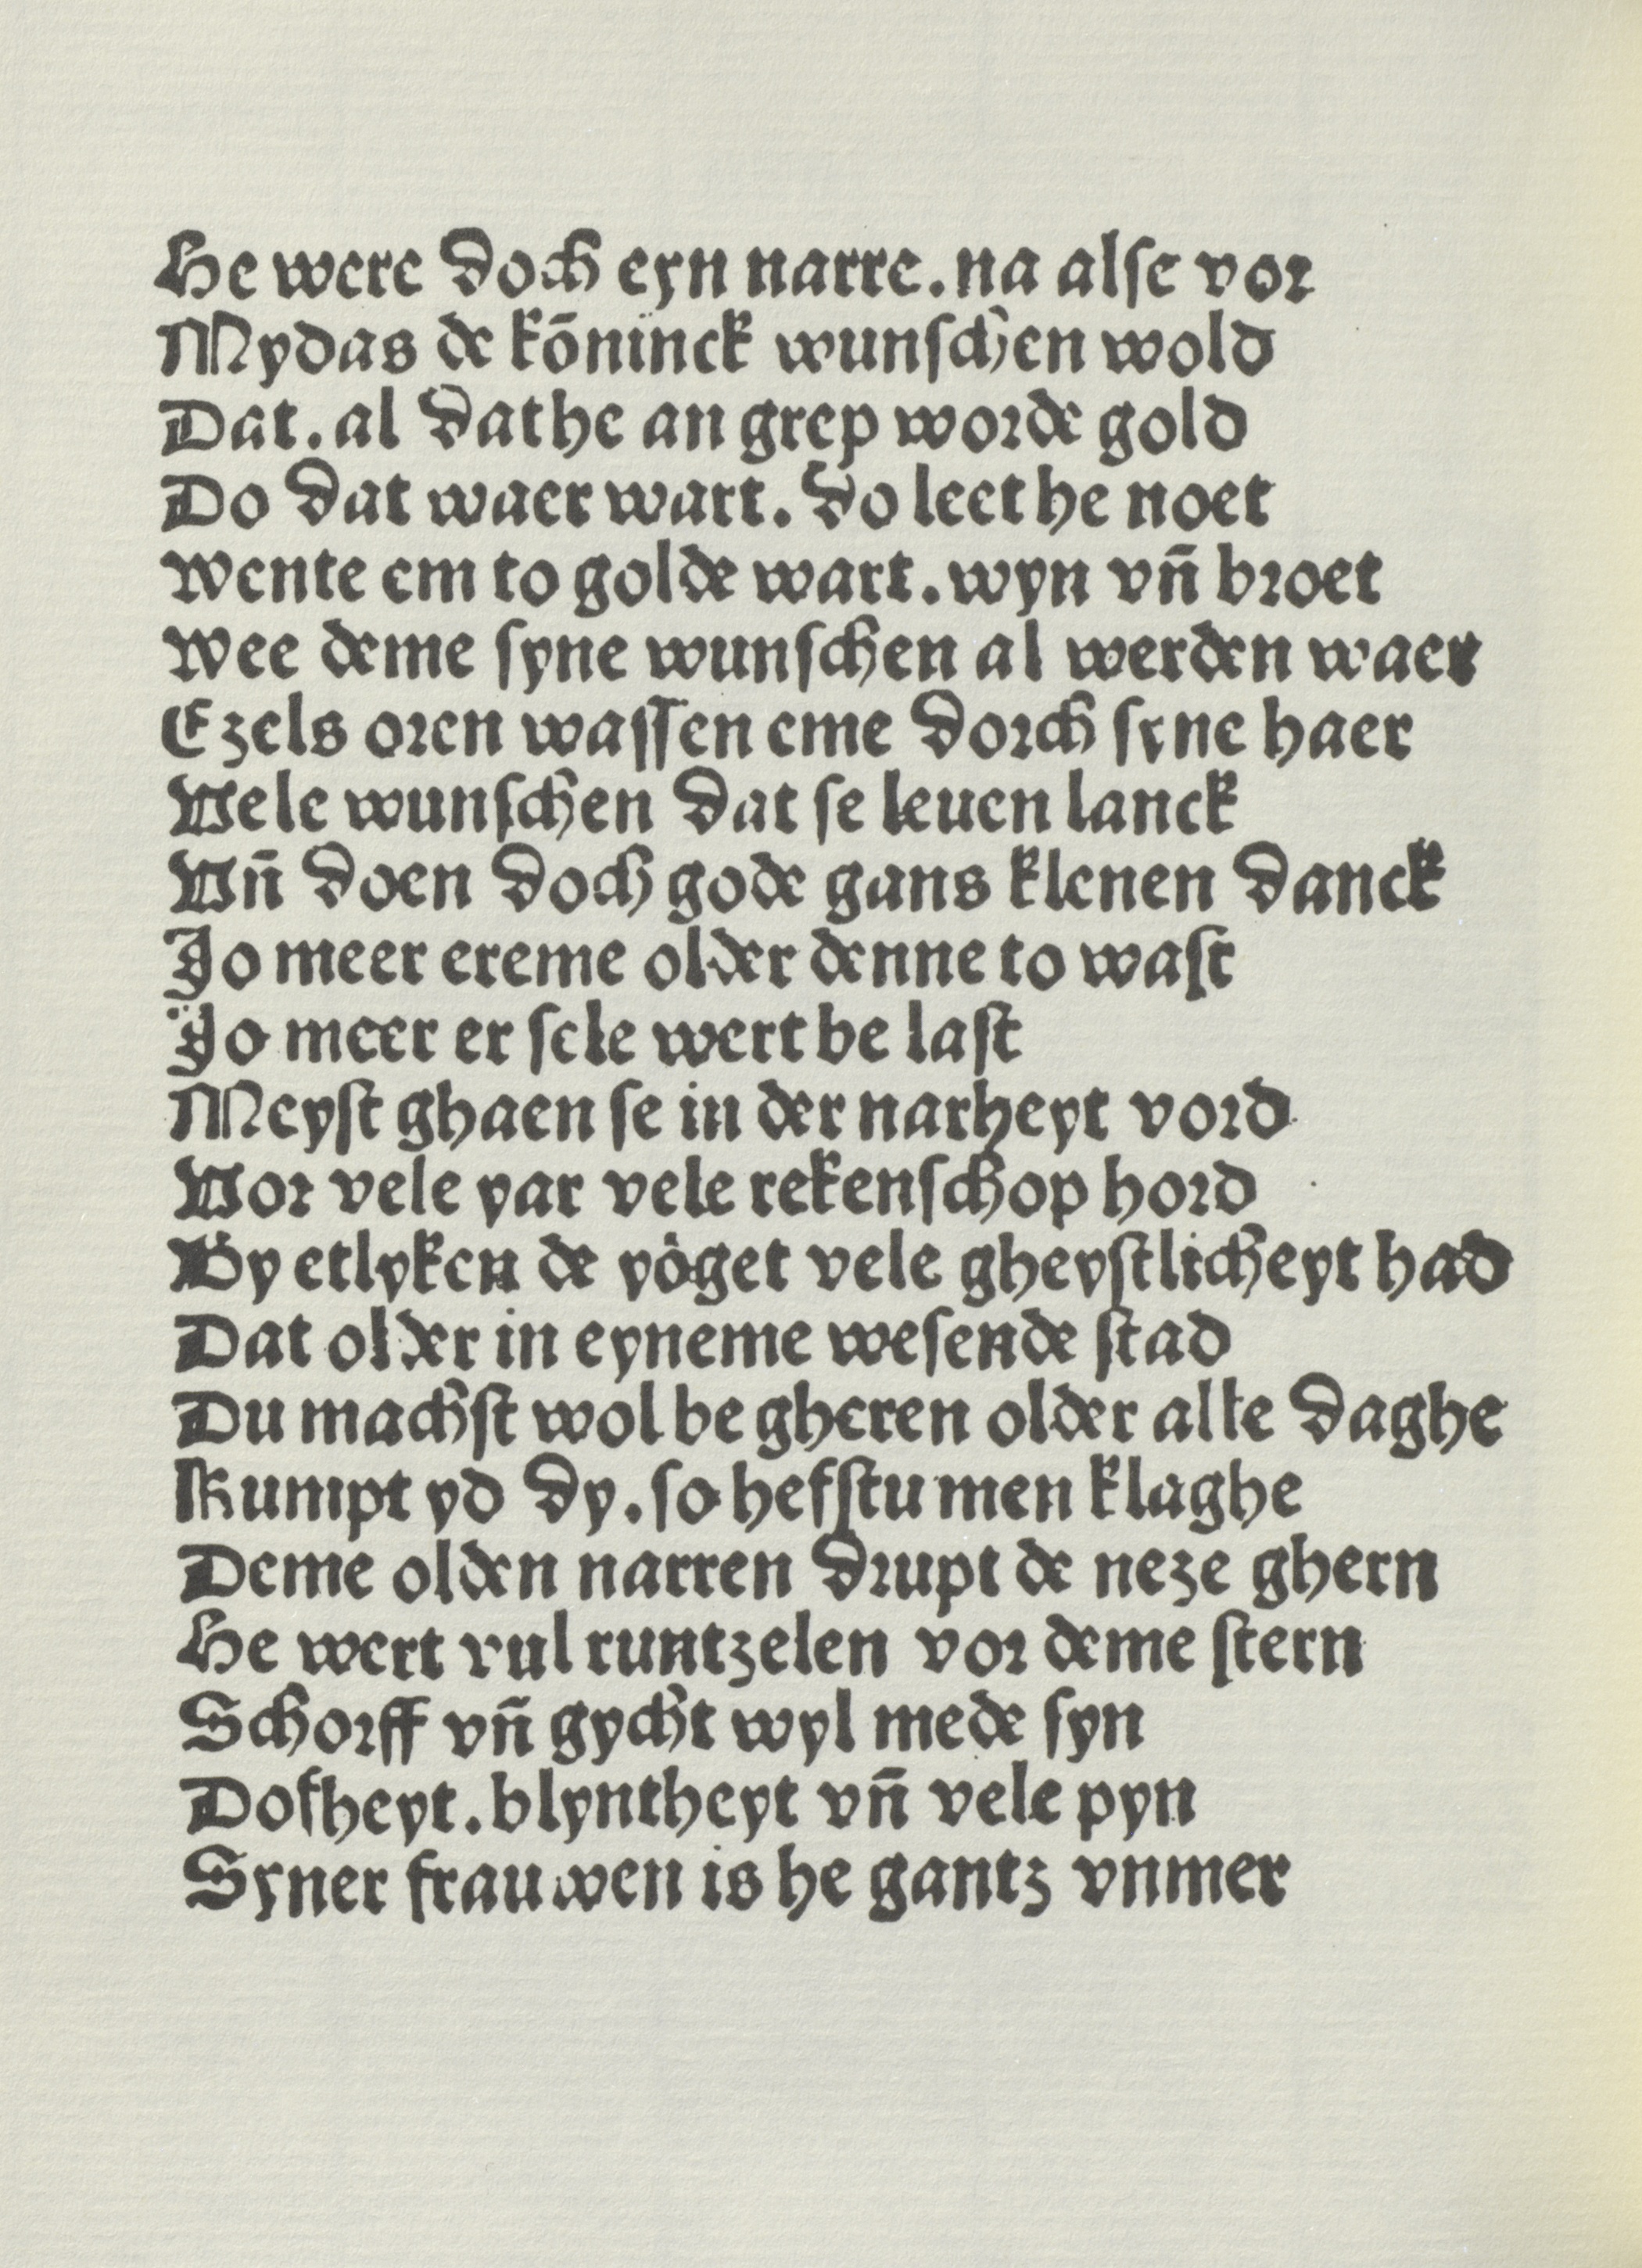 He were doch eyn narre. na alse vor
Mydas de kōninck wunschen wold
Dat. al dat he an grep worde gold
Do dat waer wart. do leet he noet
Wente em to golde wart. wyn vn̄ broet
Wee deme syne wunschen al werden waer
Ezels oren wassen eme dorch syne haer
Vele wunschen dat se leuen lanck
Vn̄ doen doch gode gans klenen danck
Jo meer ereme older denne to wast
Jo meer er sele wert be last
Meyst ghaen se in der narheyt vord
Vor vele yar vele rekenschop hord
By etlyken de yöget vele gheystlicheyt had
Dat older in eyneme wesende stad
Du machst wol be gheren older alle daghe
Kumpt yd dy. so hefstu men klaghe
Deme olden narren drupt de neze ghern
He wert vul runtzelen vor deme stern
Schorff vn̄ gycht wyl mede syn
Dofheyt. blyntheyt vn̄ vele pyn
Syner frauwen is he gantz vnmer